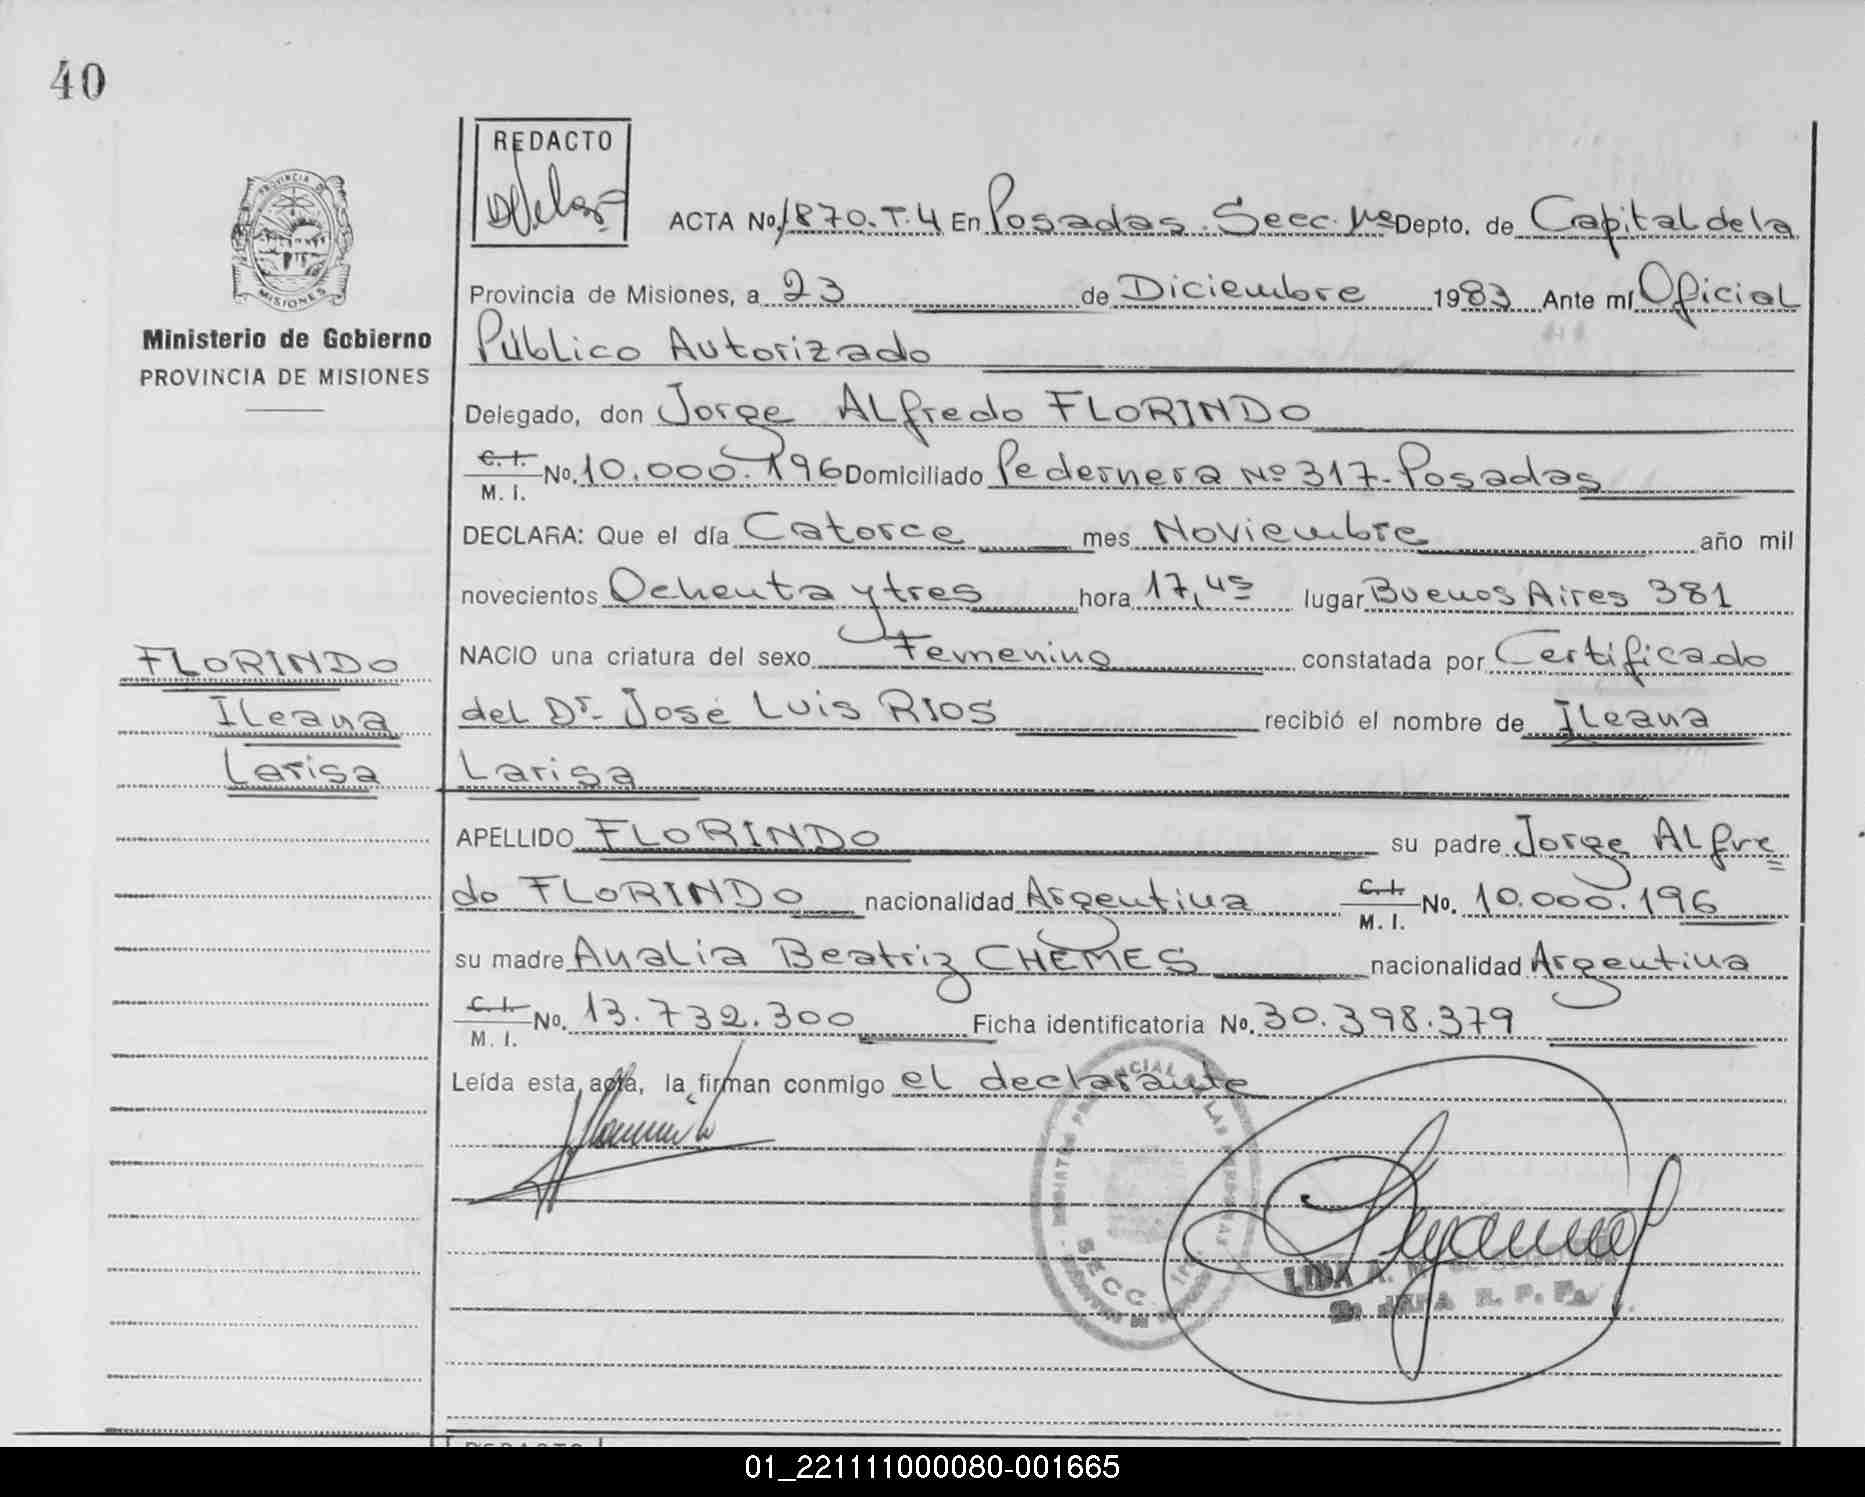 40
REDACTO
ACTA No. 1870. T. 4 En Posadas. Secc. 1ra Depto. de Capital de la
Provincia de Misiones, a 23 de Diciembre 1983 Ante mí Oficial
Público Autorizado
Delegado, don Jorge Alfredo FLORINDO
C. I. M. I. No. 10.000.196 Domiciliado Pedernera Nº 317- Posadas
DECLARA: Que el día Catorce mes Noviembre año mil
novecientos Ochenta y tres hora 17,45 lugar Buenos Aires 381
NACIO una criatura del sexo Femenino constatada por Certificado
del Dr. José Luis RIOS recibió el nombre de Ileana
Larisa
APELLIDO FLORINDO su padre Jorge Alfre=
do FLORINDO nacionalidad Argentina C. I. M. I. No. 10.000.196
su madre Analia Beatriz CHEMES nacionalidad Argentina
C. I. M. I. No. 13.732.300 Ficha identificatoria No. 30.398.379
Leída esta acta, la firman conmigo el declarante
PROVINCIA DE
MISIONES
Ministerio de Gobierno
PROVINCIA DE MISIONES
FLORINDO
Ileana
Larisa
PROVINCIAL DE LAS PERSONAS
SECC.
LIDA A.
JEFA R. P.
REDACTO
01_221111000080-001665